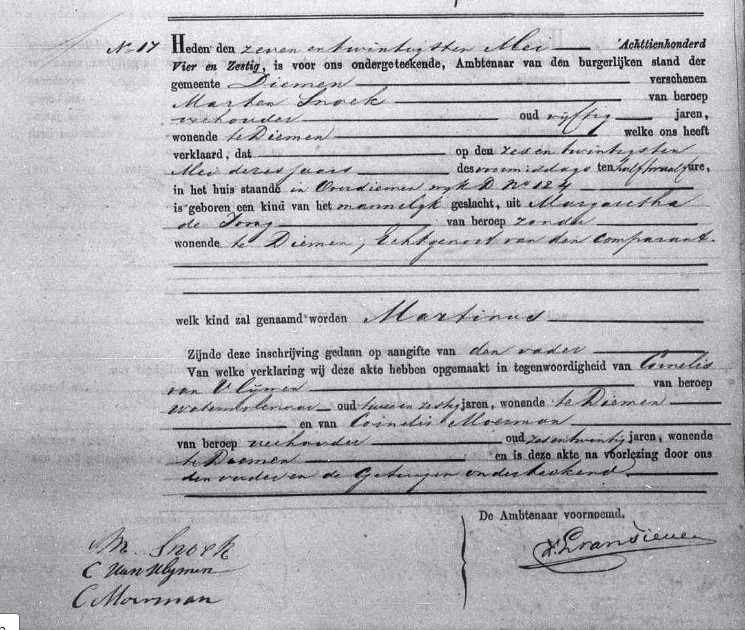 No 17 Heden den zeven en twintigsten Mei Achttienhonderd
Vier en Zestig, is voor ons ondergeteekende, Ambtenaar van den burgerlijken stand der
gemeente Diemen verschenen
Marten Snoek van beroep
veehouder oud vijftig jaren,
wonende te Diemen welke ons heeft
verklaard, dat op den zes en twintigsten
Mei dezes jaars des voormiddags ten half twaalf ure,
in het huis staande in Overdiemen wyk D No 124
is geboren een kind van het mannelyk geslacht, uit Margaretha
de Jong van beroep zonder
wonende te Diemen, Echtgenoot van den Comparant.
welk kind zal genaamd worden Martinus
Zijnde deze inschrijving gedaan op aangifte van den vader
Van welke verklaring wij deze akte hebben opgemaakt in tegenwoordigheid van Cornelis
van Vlijmen van beroep
watermolenaar oud twee en zestig jaren, wonende te Diemen
en van Cornelis Moerman
van beroep veehouder oud zes en twintig jaren, wonende
te Diemen en is deze akte na voorlezing door ons
den vader en de Getuigen onderteekend.
De Ambtenaar voornoemd.
M. Snoek
C van Vlymen
C Moerman